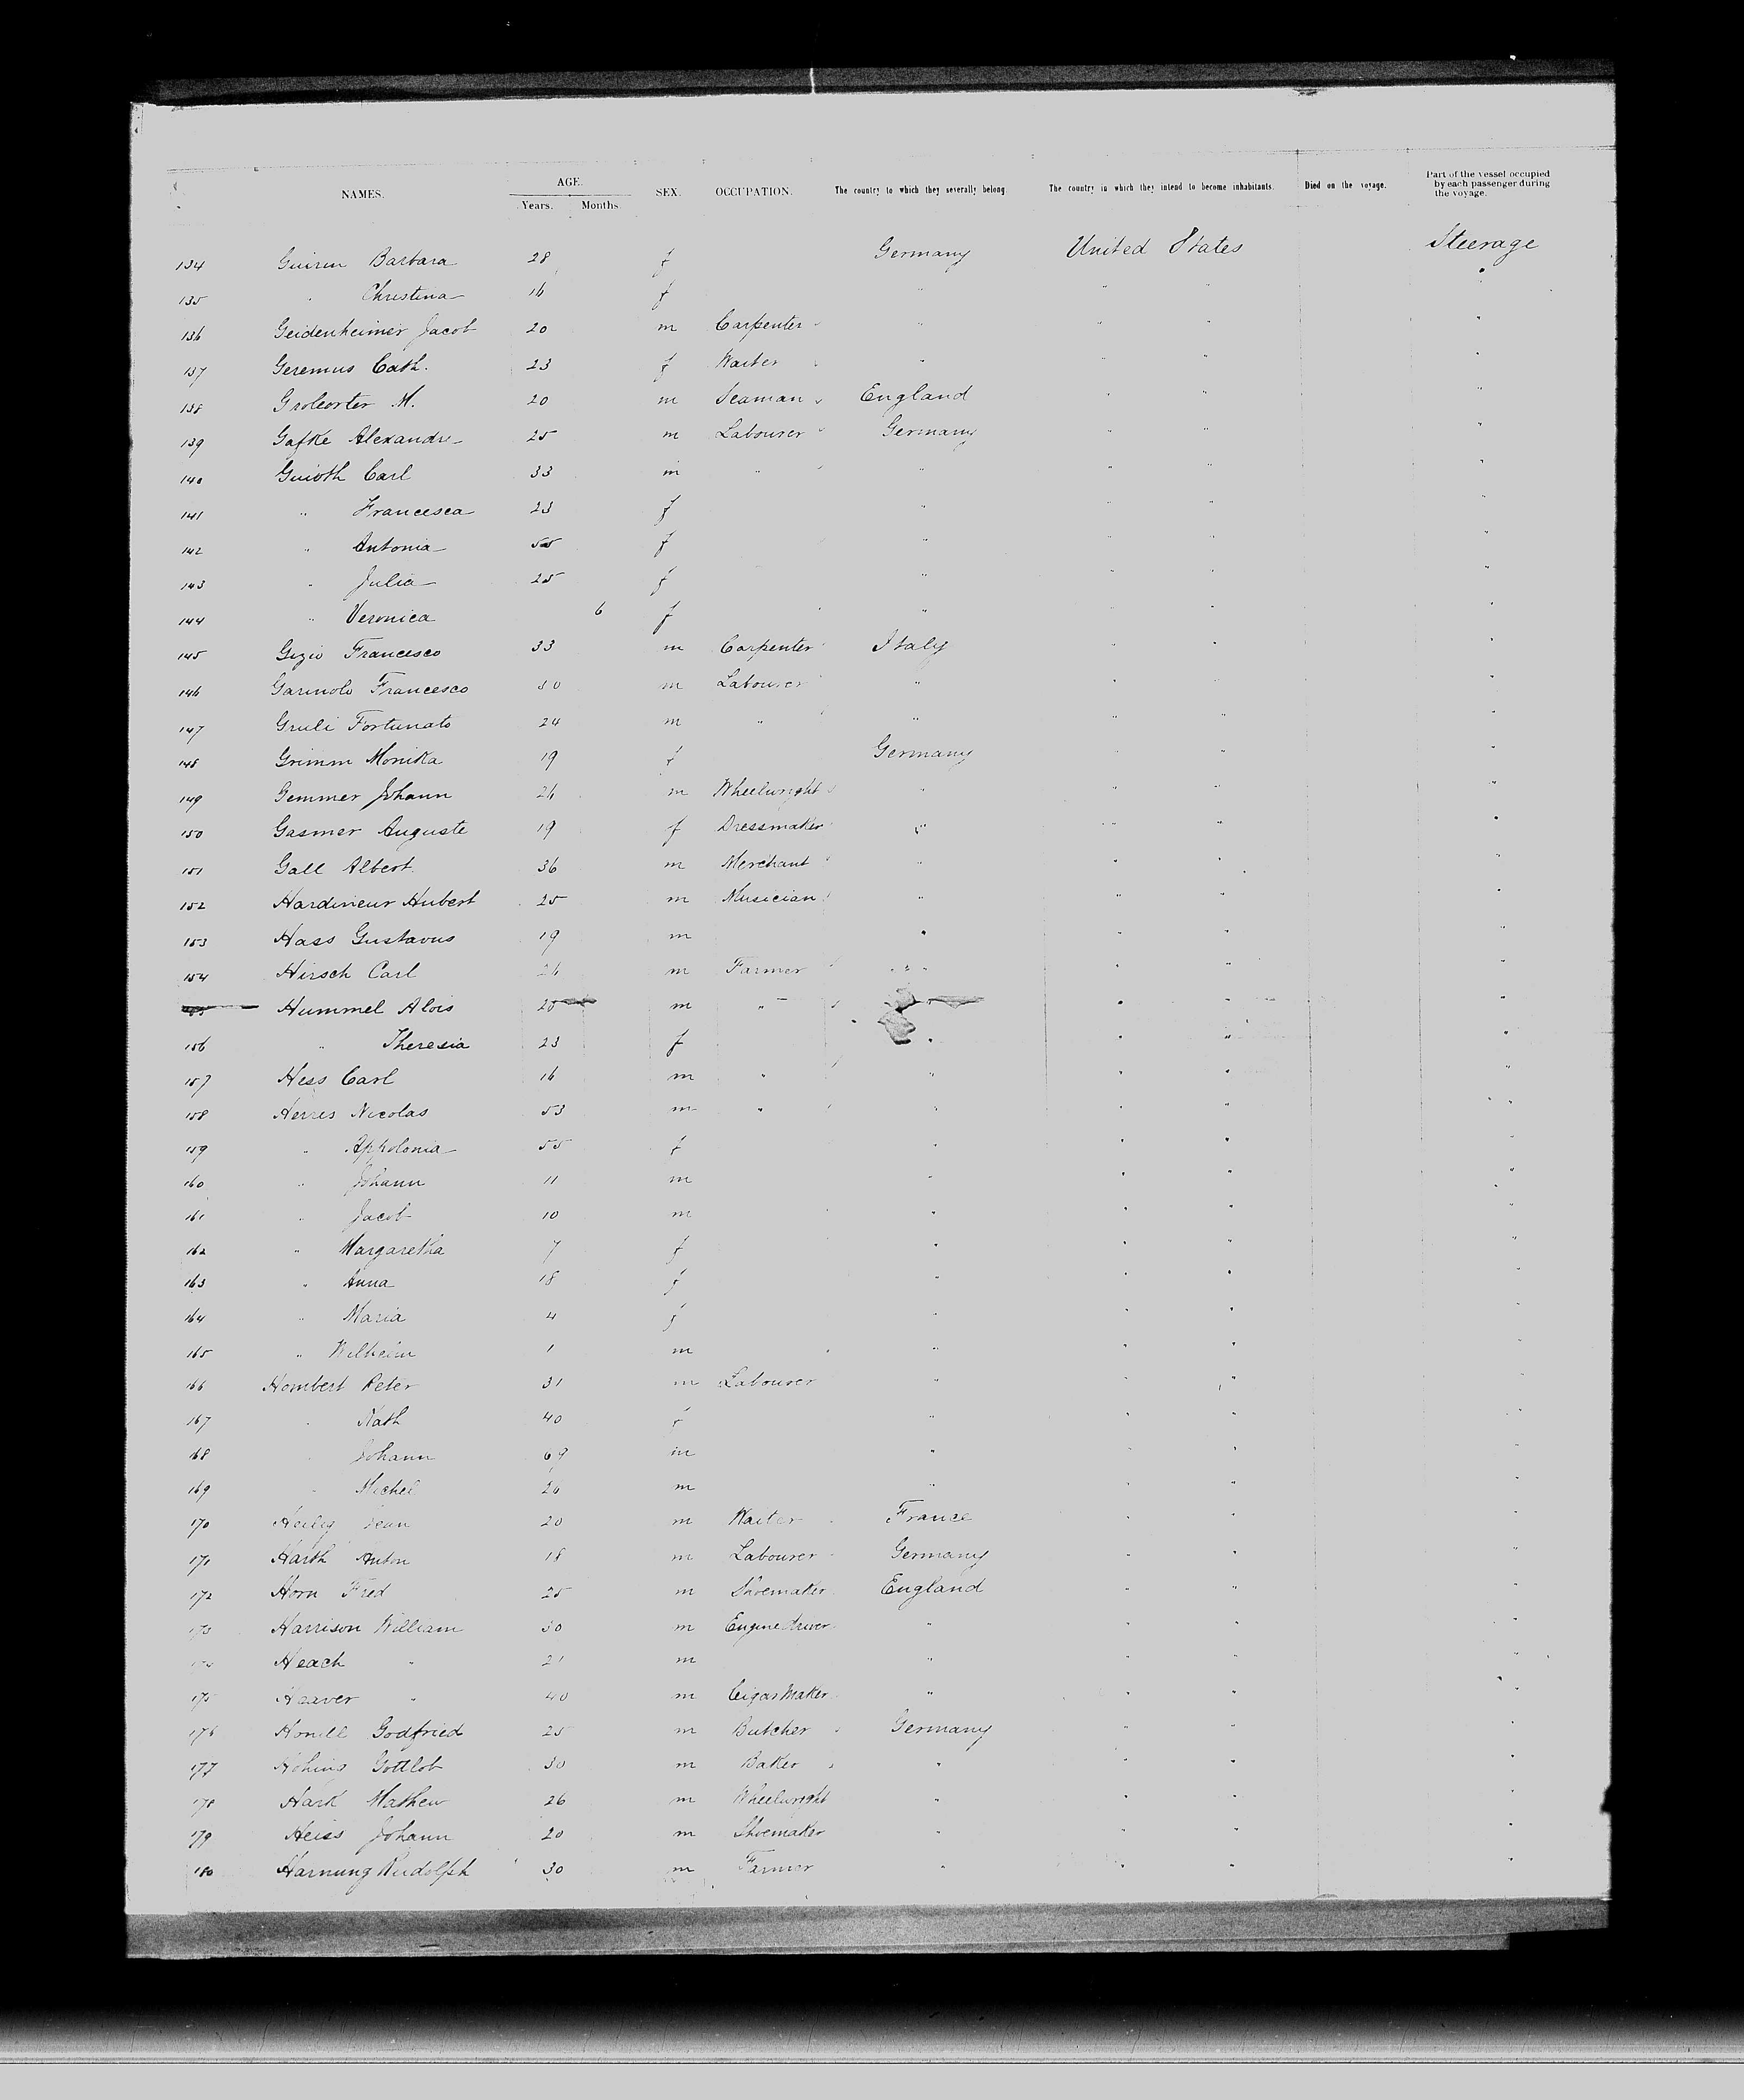 NAMES. AGE. SEX. OCCUPATION. The country to which they severally belong. The country in which they intend to become inhabitants. Died on the voyage. Part of the vessel occupied by each passenger during the voyage.
Years. Months.
134 Barbara 28 f Germany United States Steerage
135 " Christina 16 f " " " "
136 Geidenheimer Jacob 20 m Carpenter " " " "
137 Geremus Cath. 23 f Waiter " " " "
138 M. 20 m Seaman England " " "
139 Gafke Alexandre 25 m Labourer Germany " " "
140 Guioth Carl 33 m " " " " "
141 " Francesca 23 f " " " "
142 " Antonia 55 f " " " "
143 " Julia 25 f " " " "
144 " Veronica 6 f " " " "
145 Gizio Francesco 33 m Carpenter Italy " " "
146 Garinolo Francesco 30 m Labourer " " " "
147 Gruli Fortunato 24 m " " " " "
148 Grimm Monika 19 f Germany " " "
149 Gemmer Johann 26 m Wheelwright " " " "
150 Gasmer Auguste 19 f Dressmaker " " " "
151 Gall Albert 36 m Merchant " " " "
152 Hardineur Hubert 25 m Musician " " " "
153 Hass Gustavus 19 m " " " "
154 Hirsch Carl 26 m Farmer " " " "
Hummel Alois 25 m " " " " "
156 " Theresia 23 f " " " "
157 Hess Carl 16 m " " " " "
158 Herres Nicolas 53 m " " " " "
159 " Appolonia 55 f " " " "
160 " Johann 11 m " " " "
161 " Jacob 10 m " " " "
162 " Margaretha 7 f " " " "
163 " Anna 18 f " " " "
164 " Maria 4 f " " " "
165 " Wilhelm 1 m " " " "
166 Hombert Peter 31 m Labourer " " " "
167 " Kath 40 f " " " "
168 " Johann 69 m " " " "
169 " Michel 26 m " " " "
170 Heilig Jean 20 m Waiter France " " "
171 Harth Anton 18 m Labourer Germany " " "
172 Horn Fred 25 m Shoemaker England " " "
173 Harrison William 30 m Engine driver " " " "
174 Heach " 21 m " " " "
175 Haaver " 40 m Cigar Maker " " " "
176 Godfried 25 m Butcher Germany " " "
177 Gottlob 30 m Baker " " " "
178 Hark Mathew 26 m Wheelwright " " " "
179 Heiss Johann 20 m Shoemaker " " " "
180 Harnung Rudolph 30 m Farmer " " " "